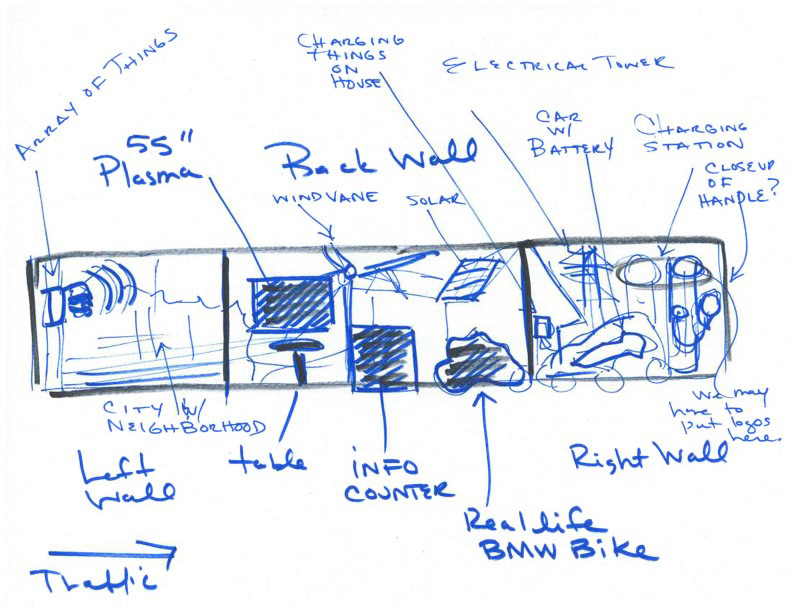 ARRAY OF THINGS
CHARGING
THINGS
ON
HOUSE
ELECTRICAL TOWER
55"
Plasma
Back Wall
CAR
W/
BATTERY
CHARGING
STATION
CLOSEUP
OF
HANDLE?
WINDVANE
SOLAR
CITY W/
NEIGHBORHOOD
Left
Wall
table
INFO
COUNTER
Real life
BMW Bike
Right Wall
We may
have to
put logos
here.
Traffic